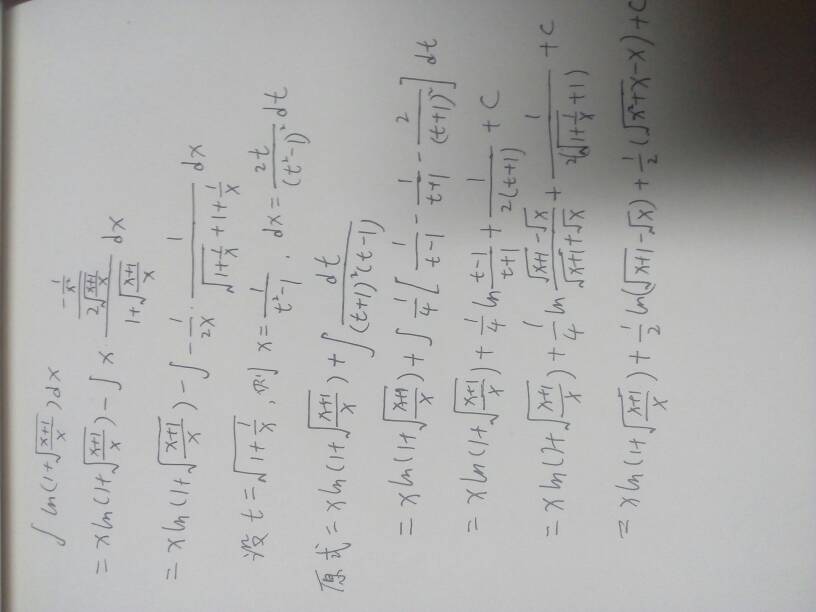 ∫ ln(1+√((x+1)/x))dx
= xln(1+√((x+1)/x)) - ∫ x · ((-1/x²)/(2√((x+1)/x)))/(1+√((x+1)/x)) dx
= xln(1+√((x+1)/x)) - ∫ -1/(2x) · 1/(√(1+1/x)+1+1/x) dx
设 t=√(1+1/x), 则 x=1/(t²-1), dx=2t/(t²-1)² dt
原式 = xln(1+√((x+1)/x)) + ∫ dt/((t+1)²(t-1))
= xln(1+√((x+1)/x)) + ∫ 1/4[1/(t-1) - 1/(t+1) - 2/(t+1)²] dt
= xln(1+√((x+1)/x)) + 1/4 ln (t-1)/(t+1) + 1/(2(t+1)) + C
= xln(1+√((x+1)/x)) + 1/4 ln (√(x+1)-√x)/(√(x+1)+√x) + 1/(2(√(1+1/x)+1)) + C
= xln(1+√((x+1)/x)) + 1/2 ln(√(x+1)-√x) + 1/2(√(x²+x)-x)+C